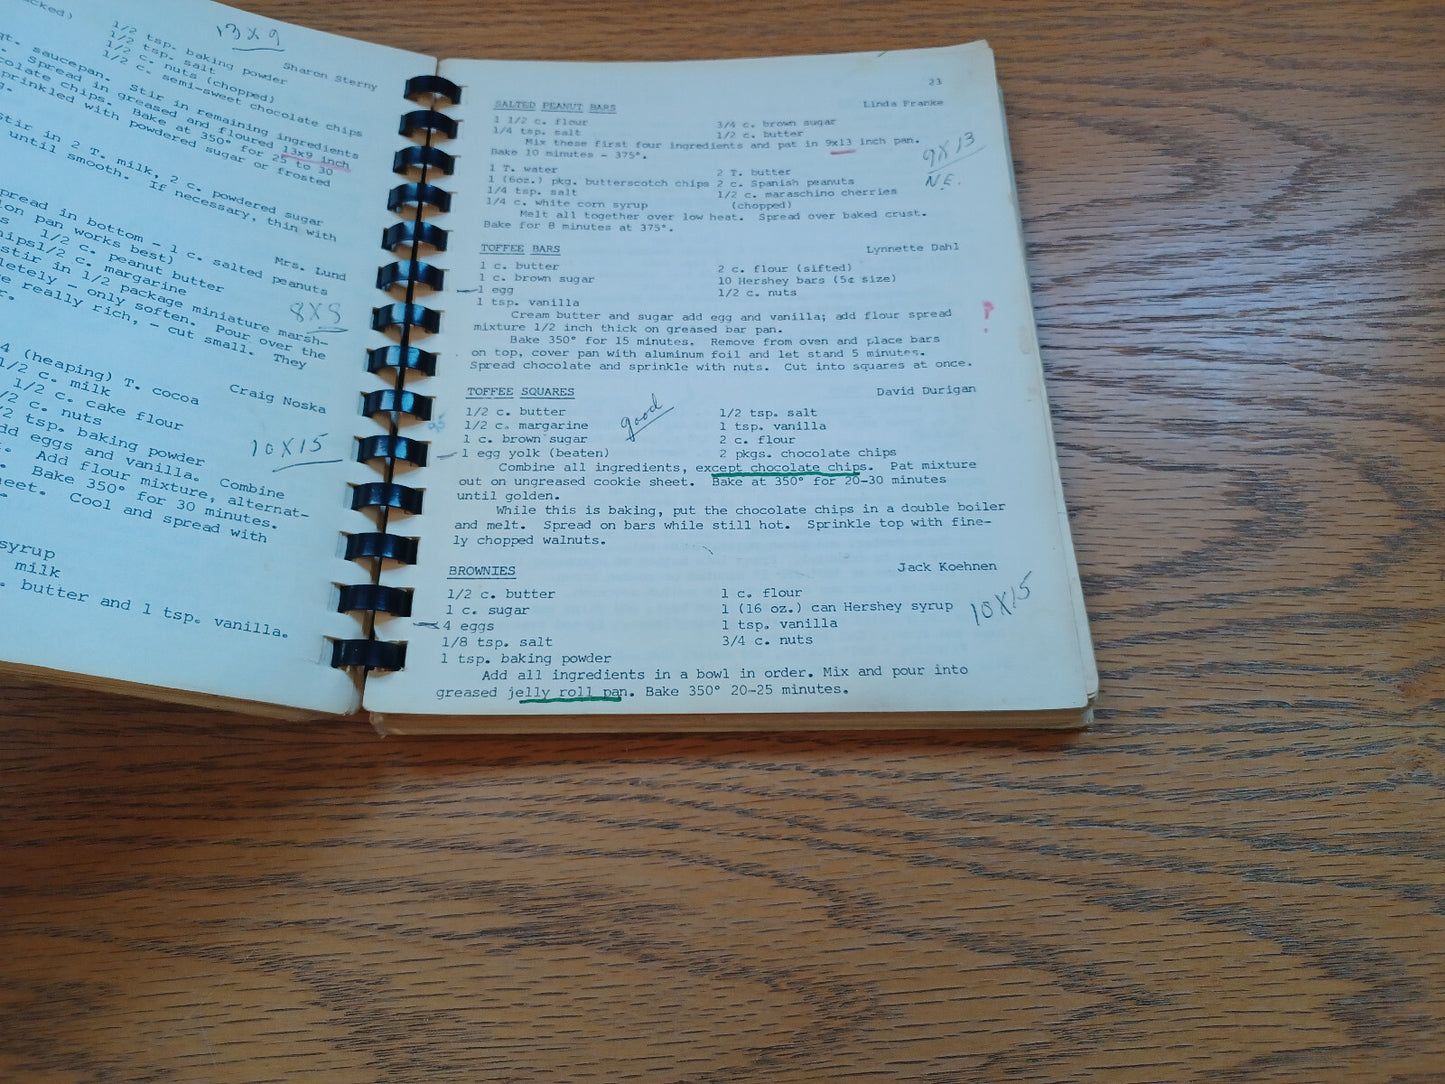 13 X 9
1/2 tsp. baking powder
1/2 tsp. salt
1/2 c. nuts (chopped)
1/2 c. semi-sweet chocolate chips
Sharon Sterny
qt. saucepan. Stir in remaining ingredients
Spread in greased and floured 13x9 inch
chips. Bake at 350° for 25 to 30
sprinkled with powdered sugar or frosted
stir in 2 T. milk, 2 c. powdered sugar
until smooth. If necessary, thin with
Mrs. Lund
spread in bottom - 1 c. salted peanuts
pan works best)
1/2 c. peanut butter
1/2 c. margarine
stir in 1/2 package miniature marsh-
- only soften. Pour over the
really rich, - cut small. They
8X8
4 (heaping) T. cocoa
Craig Noska
1/2 c. milk
1/2 c. cake flour
c. nuts
tsp. baking powder
10X15
eggs and vanilla. Combine
Add flour mixture, alternat-
Bake 350° for 30 minutes.
Cool and spread with
syrup
milk
butter and 1 tsp. vanilla.
23
SALTED PEANUT BARS Linda Franke
1 1/2 c. flour 3/4 c. brown sugar
1/4 tsp. salt 1/2 c. butter
Mix these first four ingredients and pat in 9x13 inch pan.
Bake 10 minutes - 375°.
9X13
N.E.
1 T. water 2 T. butter
1 (6oz.) pkg. butterscotch chips 2 c. Spanish peanuts
1/4 tsp. salt 1/2 c. maraschino cherries
1/4 c. white corn syrup (chopped)
Melt all together over low heat. Spread over baked crust.
Bake for 8 minutes at 375°.
TOFFEE BARS Lynnette Dahl
1 c. butter 2 c. flour (sifted)
1 c. brown sugar 10 Hershey bars (5¢ size)
1 egg 1/2 c. nuts
1 tsp. vanilla
Cream butter and sugar add egg and vanilla; add flour spread
mixture 1/2 inch thick on greased bar pan.
?
Bake 350° for 15 minutes. Remove from oven and place bars
on top, cover pan with aluminum foil and let stand 5 minutes.
Spread chocolate and sprinkle with nuts. Cut into squares at once.
TOFFEE SQUARES David Durigan
1/2 c. butter 1/2 tsp. salt
1/2 c. margarine 1 tsp. vanilla
good
1 c. brown sugar 2 c. flour
1 egg yolk (beaten) 2 pkgs. chocolate chips
Combine all ingredients, except chocolate chips. Pat mixture
out on ungreased cookie sheet. Bake at 350° for 20-30 minutes
until golden.
While this is baking, put the chocolate chips in a double boiler
and melt. Spread on bars while still hot. Sprinkle top with fine-
ly chopped walnuts.
BROWNIES Jack Koehnen
1/2 c. butter 1 c. flour
1 c. sugar 1 (16 oz.) can Hershey syrup
10X15
4 eggs 1 tsp. vanilla
1/8 tsp. salt 3/4 c. nuts
1 tsp. baking powder
Add all ingredients in a bowl in order. Mix and pour into
greased jelly roll pan. Bake 350° 20-25 minutes.